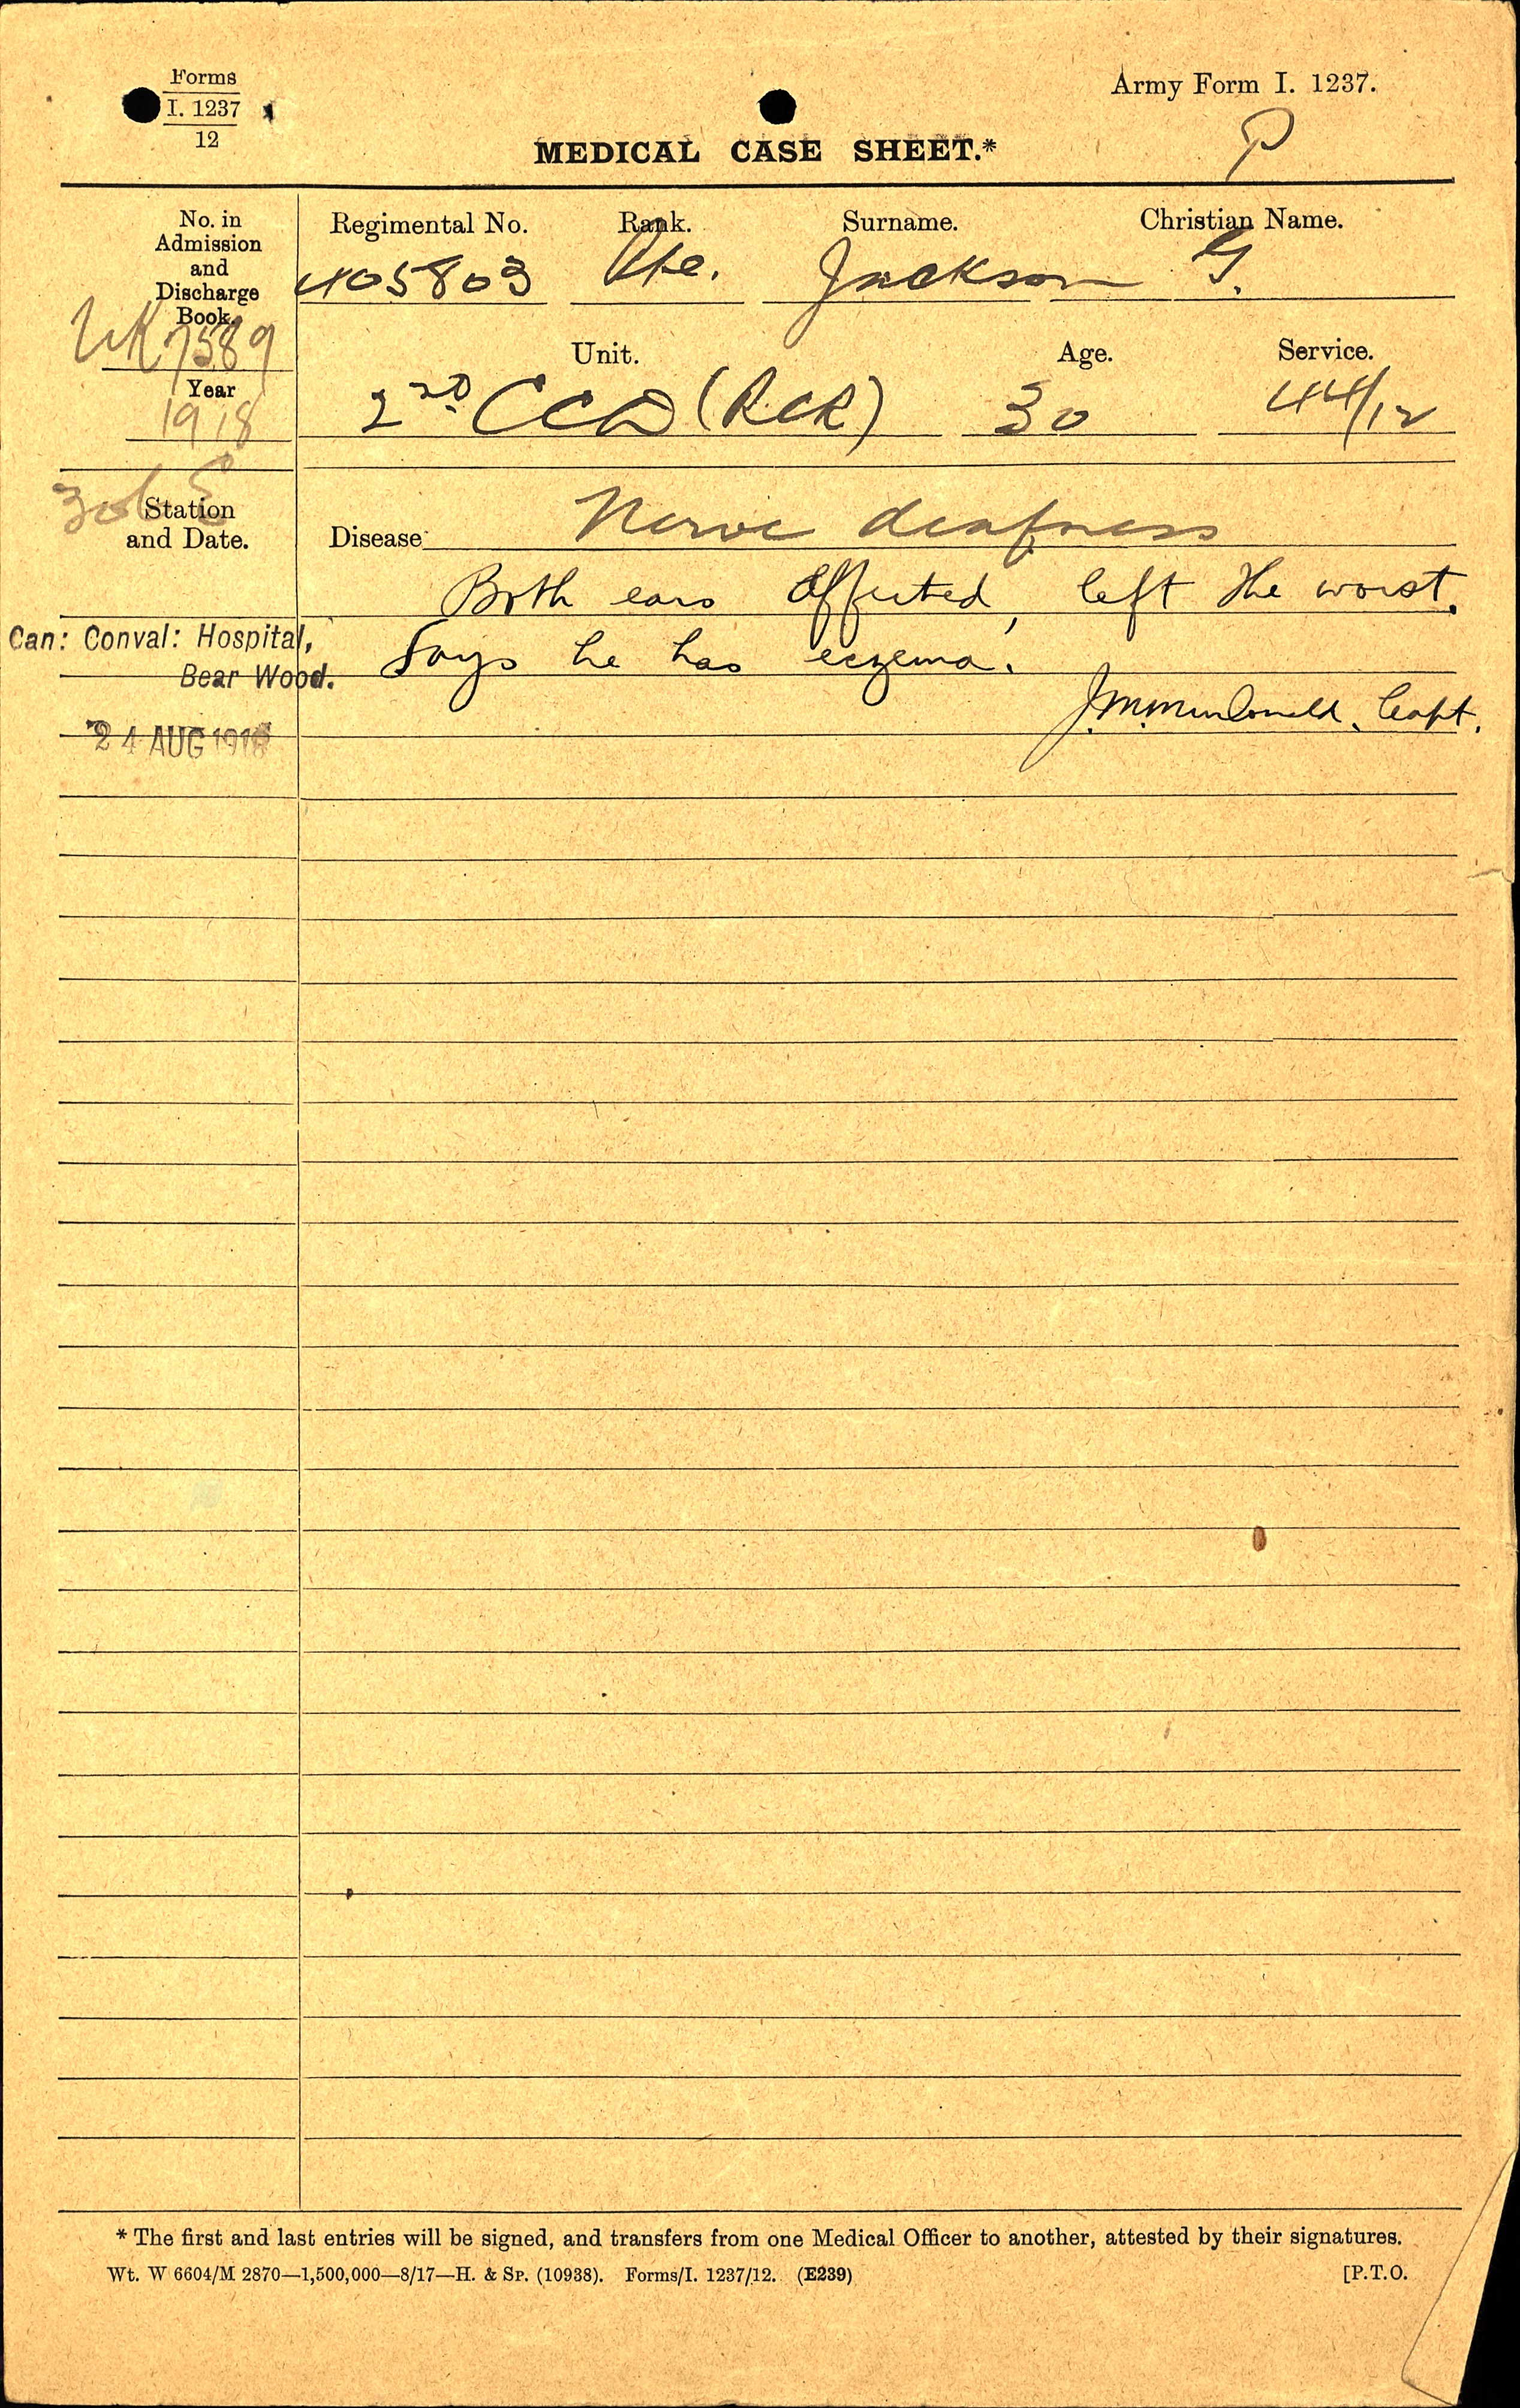 Forms
I. 1237
12
Army Form I. 1237.
P
MEDICAL CASE SHEET.*
No. in
Admission
and
Discharge
Book.
UK 7589
Year
1918
Regimental No. Rank. Surname. Christian Name.
405803 Pte. Jackson G.
Unit. Age. Service.
2nd CCD (RCR) 30 44/12
Station
and Date.
Disease Nerve deafness
Both ears affected, left the worst.
Can: Conval: Hospital,
Bear Wood.
Says he has eczema.
J.M. MacDonald, Capt.
24 AUG 1918
* The first and last entries will be signed, and transfers from one Medical Officer to another, attested by their signatures.
Wt. W 6604/M 2870—1,500,000—8/17—H. & Sp. (10938). Forms/I. 1237/12. (E239)
[P.T.O.